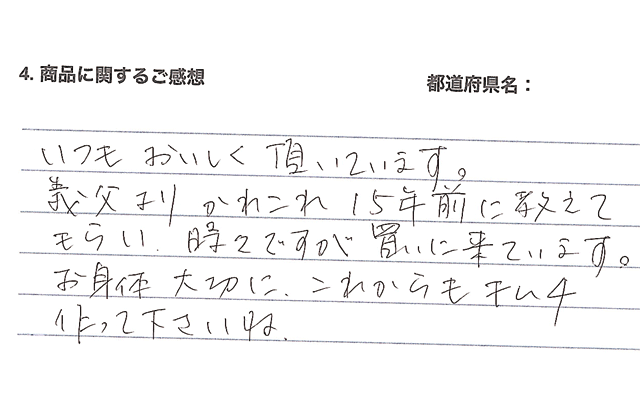 4. 商品に関するご感想
都道府県名：
いつも おいしく 頂いています。
義父より かれこれ 15年前に教えて
もらい、時々ですが 買いに来ています。
お身体 大切に、これからも キムチ
作って下さいね。